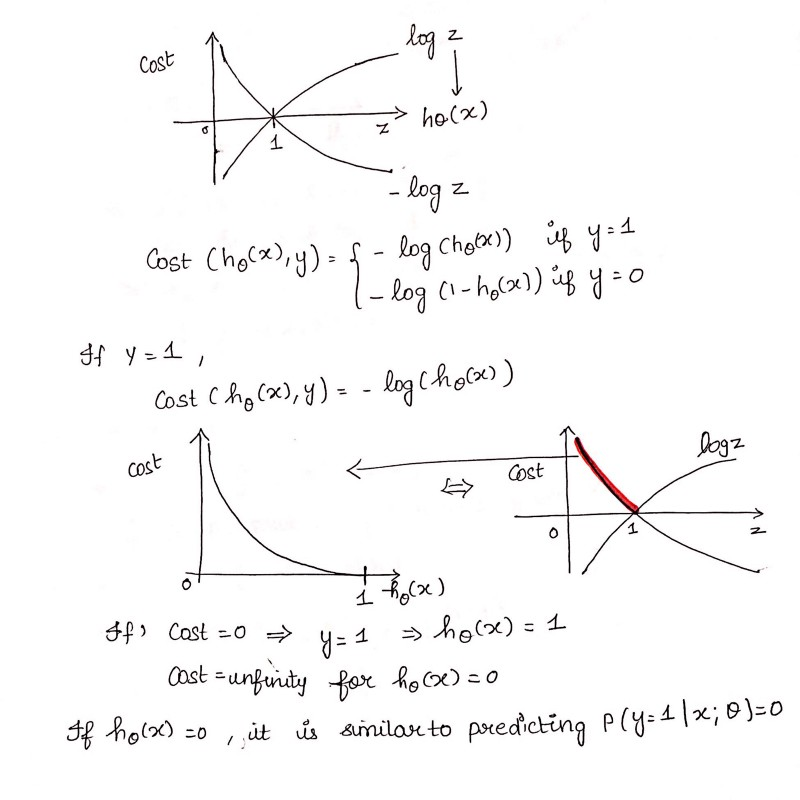 Cost
log z
↓
hθ(x)
0
1
z
- log z
Cost (hθ(x), y) = { - log(hθ(x)) if y=1
- log (1-hθ(x)) if y=0
If y=1,
Cost (hθ(x), y) = - log(hθ(x))
cost
0
1
hθ(x)
⇔
Cost
log z
0
1
z
If, Cost=0 ⇒ y=1 ⇒ hθ(x) = 1
Cost=infinity for hθ(x)=0
If hθ(x)=0, it is similar to predicting P(y=1|x; θ)=0